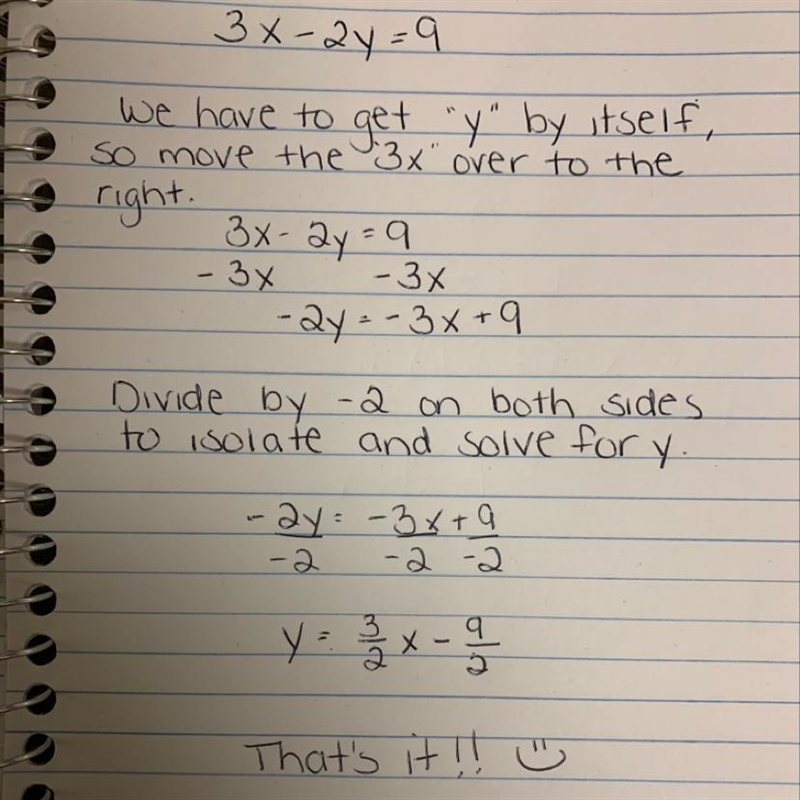 3x - 2y = 9
We have to get "y" by itself,
so move the "3x" over to the
right.
3x - 2y = 9
- 3x - 3x
- 2y = - 3x + 9
Divide by -2 on both sides
to isolate and solve for y.
- 2y = - 3x + 9
-2 -2 -2
y = 3/2 x - 9/2
That's it!! :)